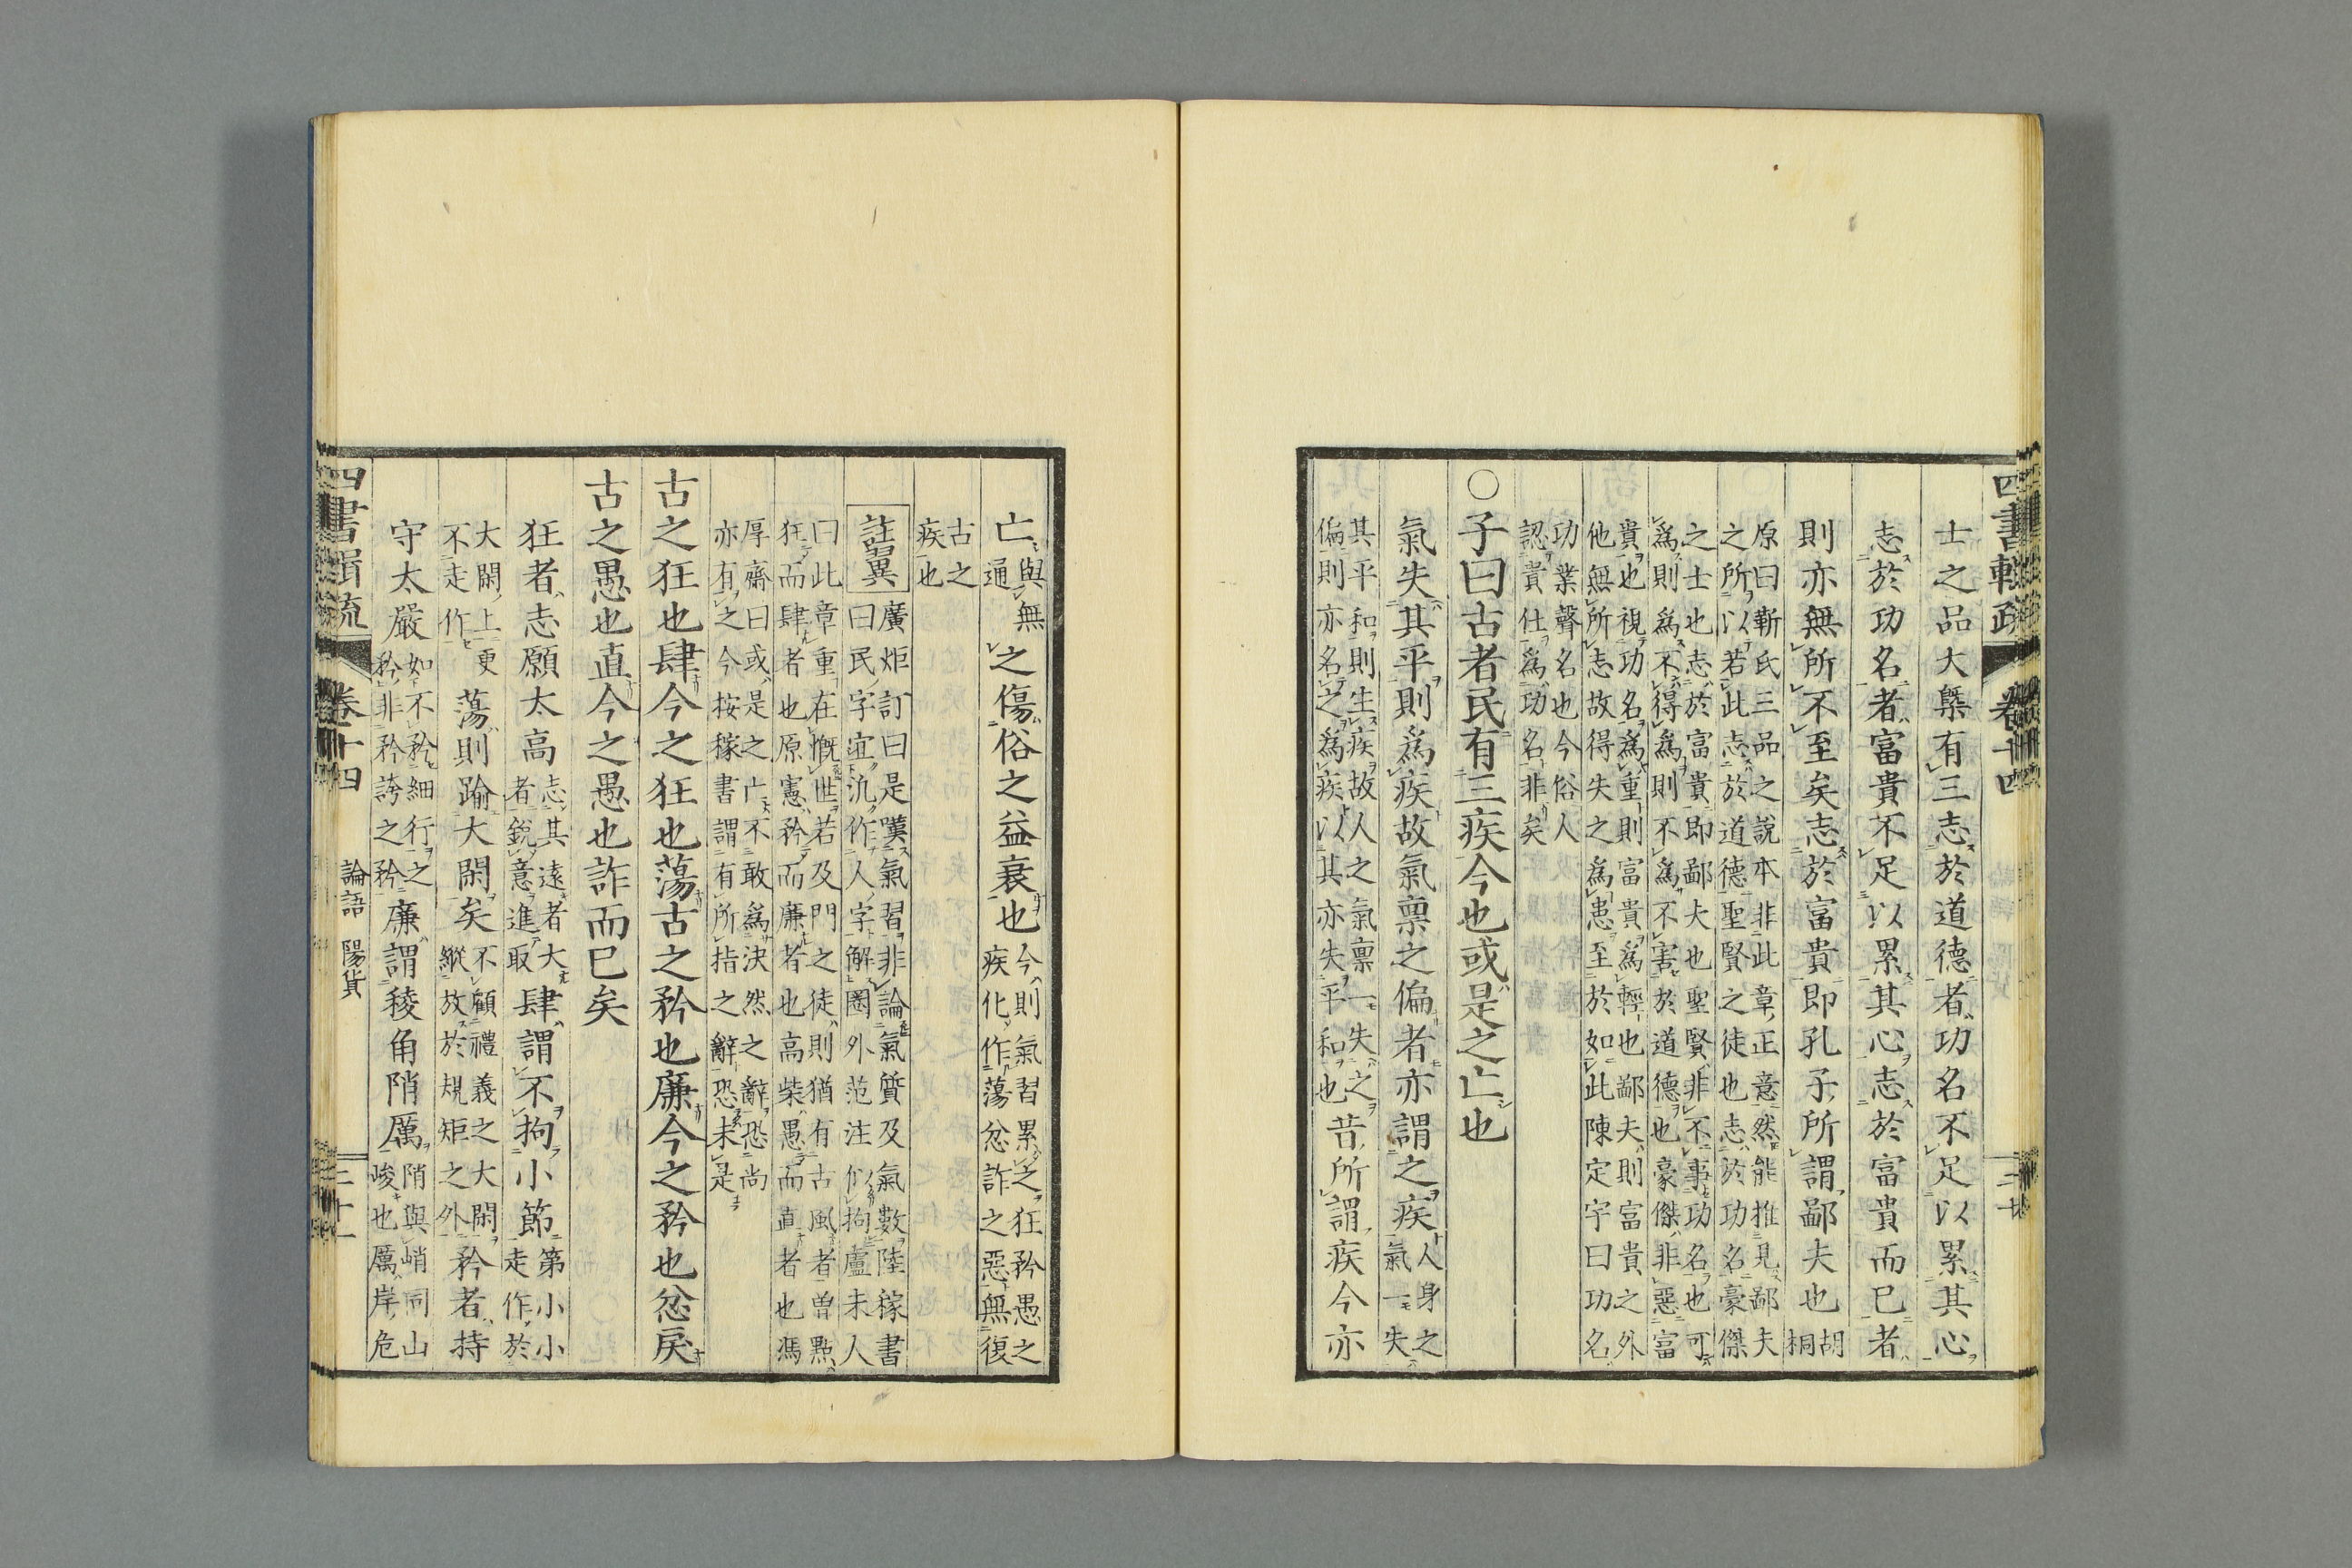 士之品大槩有三志於道德者功名不足以累其心
志於功名者富貴不足以累其心志於富貴而已者
則亦無所不至矣志於富貴即孔子所謂鄙夫也胡桐
原曰靳氏三品之說本非此章正意然能推見鄙夫
之所以若此志於道德聖賢之徒也志於功名豪傑
之士也志於富貴即鄙夫也聖賢非不事功名也可
爲則爲不得爲則不爲不害於道德也豪傑非惡富
貴也視功名爲重則富貴爲輕也鄙夫則富貴之外
他無所志故得失之爲患至於如此陳定宇曰功名
功業聲名也今俗人
認貴仕爲功名非矣
○子曰古者民有三疾今也或是之亡也
氣失其平則爲疾故氣禀之偏者亦謂之疾人身之
氣一失
其平和則生疾故人之氣禀一失之
偏則亦名之爲疾以其亦失平和也昔所謂疾今亦
亡與無
通之傷俗之益衰也今則氣習累之狂矜愚之
疾化作蕩忿詐之惡無復
古之
疾也
註異廣炬訂曰是嘆氣習非論氣質及氣數陸稼書
曰民字宜氿作人字解圈外范注似拘盧未人
曰此章重在慨世若及門之徒則猶有古風者曽㸃
狂而肆者也原憲矜而廉者也高柴愚而直者也馮
厚齋曰或是之亡不敢爲決然之辭恐尚
亦有之今按稼書謂有所指之辭恐未是
古之狂也肆今之狂也蕩古之矜也廉今之矜也忿戾
古之愚也直今之愚也詐而已矣
狂者志願太高志其遠者大
者銳意進取肆謂不拘小節第小小
走作於
大閑上更
不走作蕩則踰大閑矣不顧禮義之大閑
縱放於規矩之外矜者持
守太嚴如不矜細行之
矜非矜誇之矜廉謂稜角陗厲陗與峭同山
峻也厲岸危
四書
卷十四
論語 陽貨